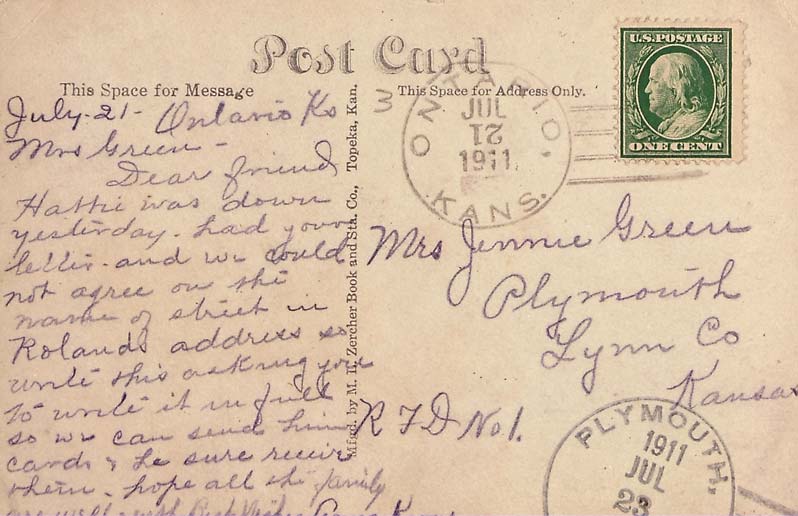 Post Card
This Space for Message
This Space for Address Only.
U.S. POSTAGE
ONE CENT
ONTARIO, KANS.
JUL
21
1911
3
July-21- Ontario Ks
Mrs Green-
Dear friend
Hattie was down
yesterday- had your
letter- and we could
not agree on the
name of street in
Rolands address so
write this asking you
to write it in full
so we can send him
cards & he sure receive
them- hope all the family
are well- with Best Wishes
Mfgd. by M. H. Zercher Book and Sta. Co., Topeka, Kan.
Mrs Jennie Green
Plymouth
Lynn Co
Kansas
R F D No 1.
PLYMOUTH,
1911
JUL
23